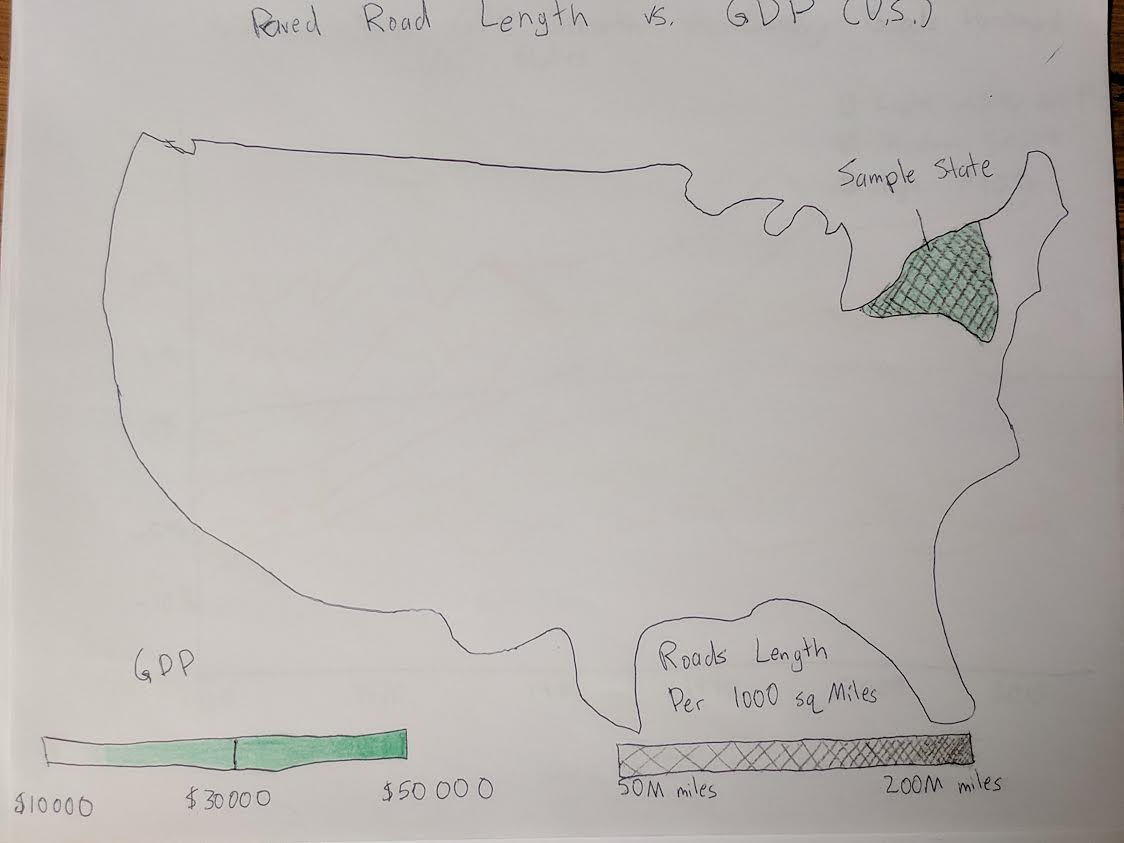 Paved Road Length vs. GDP (U.S.)
Sample State
GDP
$10000
$30000
$50000
Roads Length
Per 1000 sq Miles
50M miles
200M miles